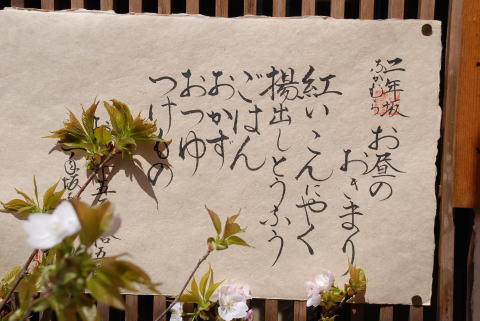 二年坂
なかむら
お昼の
おきまり
紅いこんにやく
揚出しとうふう
ごはん
おかず
おつゆ
つけもの